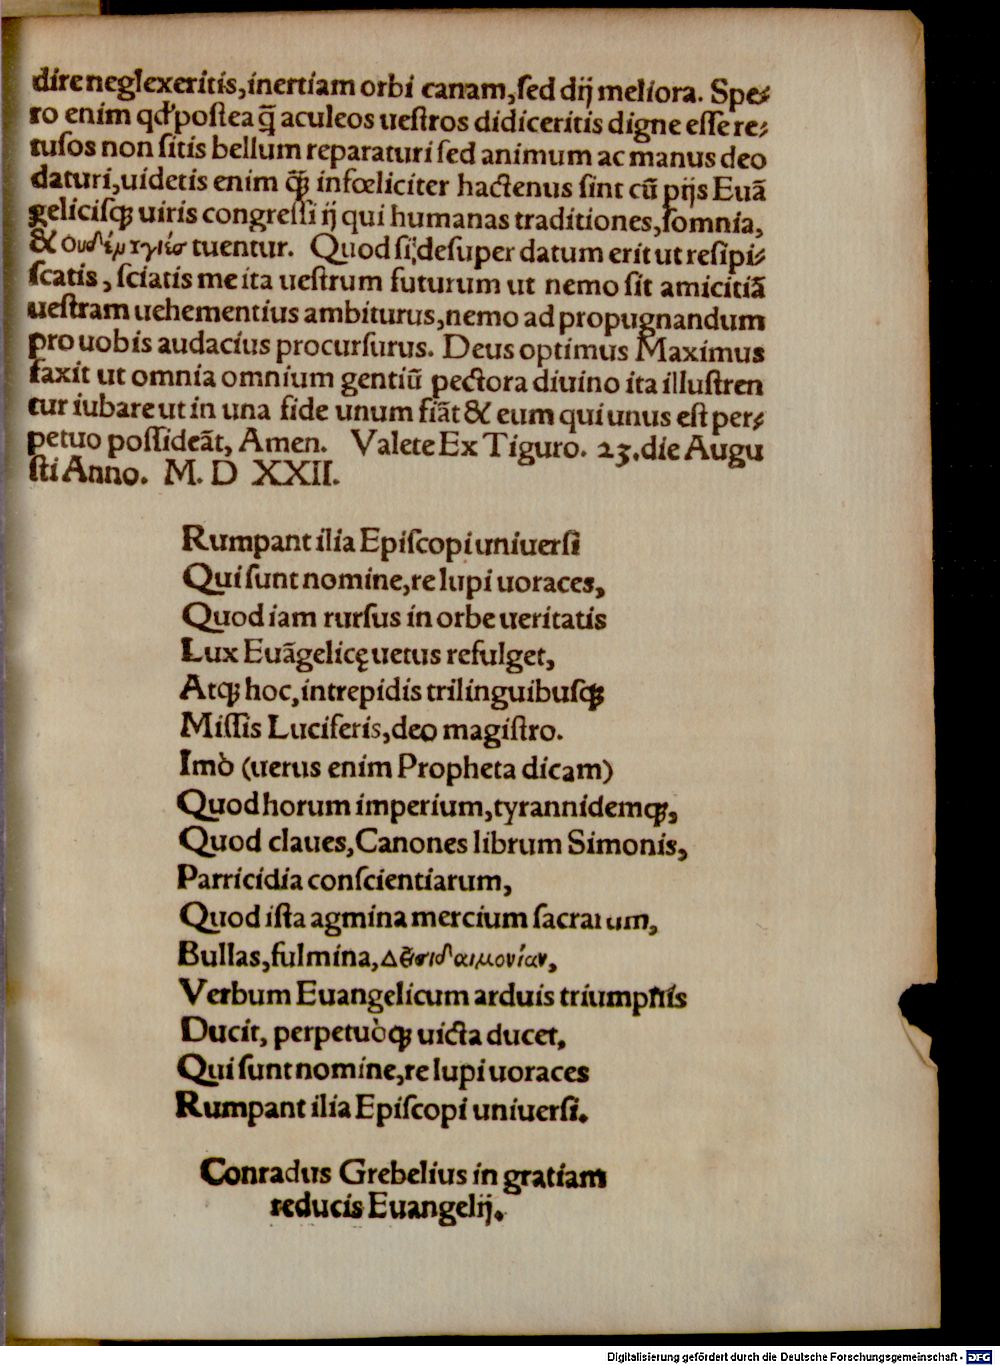 dire neglexeritis, inertiam orbi canam, sed dij meliora. Spe⸗
ro enim qđ postea q̃ aculeos uestros didiceritis digne esse re⸗
tusos non sitis bellum reparaturi sed animum ac manus deo
daturi, uidetis enim q̃ꝫ infœliciter hactenus sint cũ pijs Euã
gelicisqꝫ uiris congressi ij qui humanas traditiones, somnia,
& tuentur. Quod si desuper datum erit ut resipi⸗
scatis, sciatis me ita uestrum futurum ut nemo sit amicitiã
uestram uehementius ambiturus, nemo ad propugnandum
pro uobis audacius procursurus. Deus optimus Maximus
faxit ut omnia omnium gentiũ pectora diuino ita illustren
tur iubare ut in una fide unum fiãt & eum qui unus est per⸗
petuo possideãt, Amen. Valete Ex Tiguro. 23. die Augu
sti Anno. M. D XXII.
Rumpant ilia Episcopi uniuersi
Qui sunt nomine, re lupi uoraces,
Quod iam rursus in orbe ueritatis
Lux Euãgelicę uetus refulget,
Atqꝫ hoc, intrepidis trilinguibusqꝫ
Missis Luciferis, deo magistro.
Imò (uerus enim Propheta dicam)
Quod horum imperium, tyrannidemqꝫ,
Quod claues, Canones librum Simonis,
Parricidia conscientiarum,
Quod ista agmina mercium sacrarum,
Bullas, fulmina, Δεισιδαιμονίαν,
Verbum Euangelicum arduis triumphis
Ducit, perpetuòqꝫ uicta ducet,
Qui sunt nomine, re lupi uoraces
Rumpant ilia Episcopi uniuersi.
Conradus Grebelius in gratiam
reducis Euangelij.
Digitalisierung gefördert durch die Deutsche Forschungsgemeinschaft - DFG